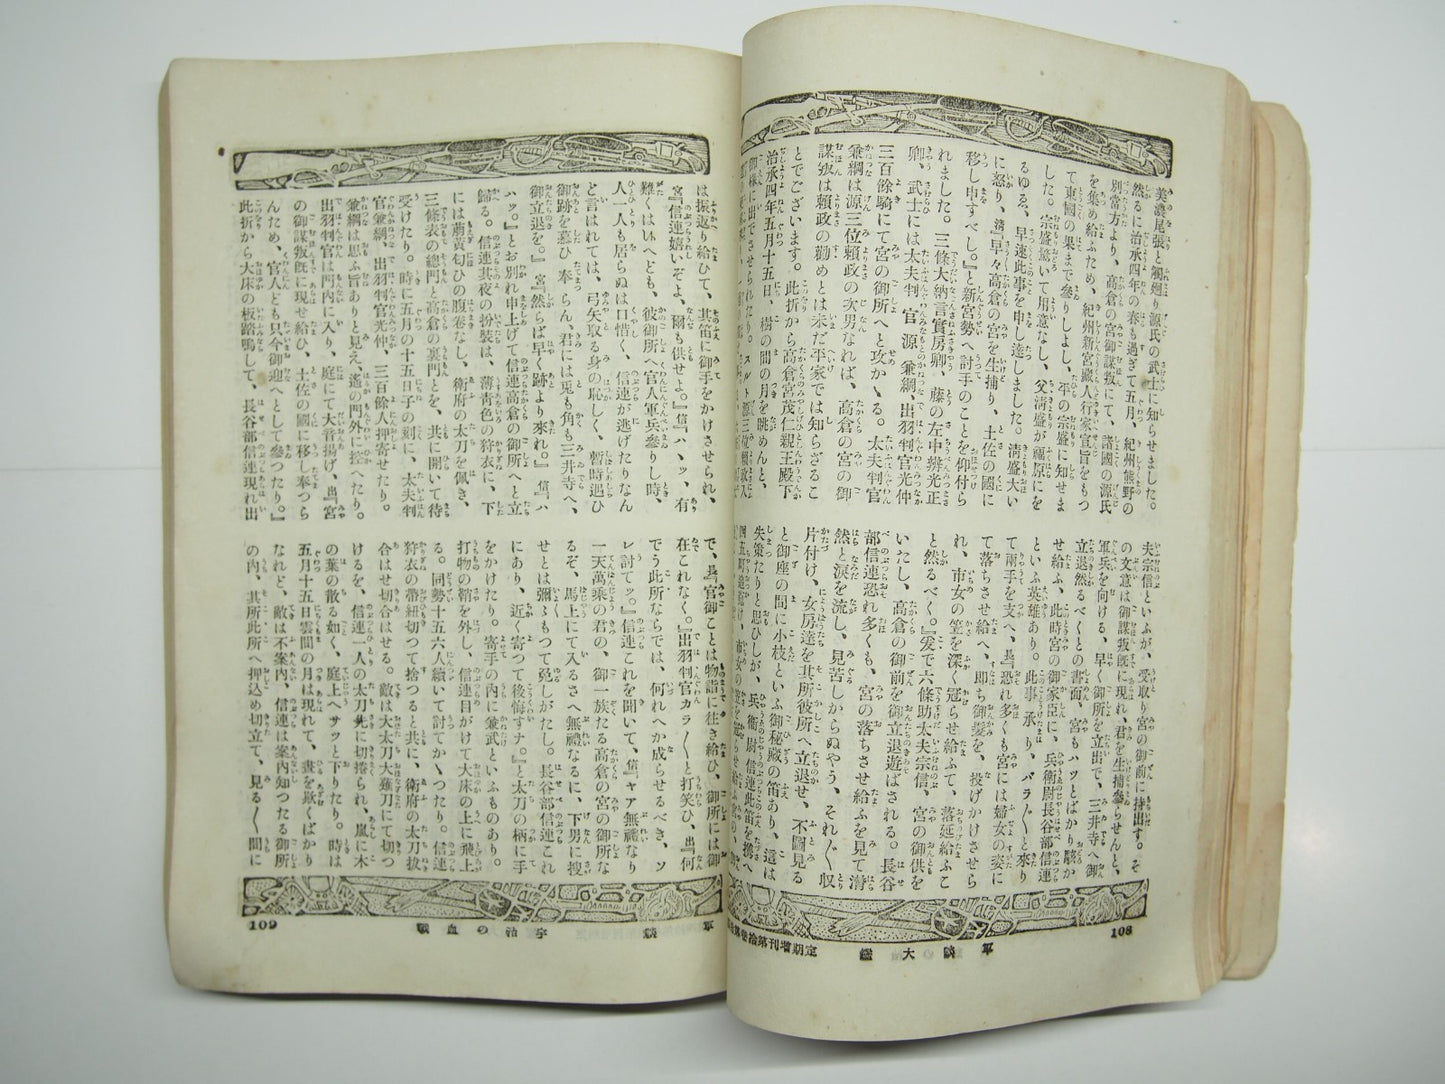 美濃尾張と觸廻り源氏の武士に知らせました。
然るに治承四年の春も過ぎて五月、紀州熊野の
別當方より、高倉の宮御謀叛にて、諸國の源氏
を集め給ふため、紀州新宮殿人行家宣旨をもつ
て東國の果まで參りしよし、平の宗盛に知せま
した。宗盛驚いて用意なし、父清盛が福原にを
るゆゑ、早速此事を申し逹しました。清盛大い
に怒り、清『早々高倉の宮を生捕り、土佐の國に
移し申すべし。』と新宮勢へ討手のことを仰付ら
れました。三條大納言實房卿、藤の左中辨光正
卿、武士には太夫判官源兼綱、出羽判官光仲
三百餘騎にて宮の御所へと攻かゝる。太夫判官
兼綱は源三位賴政の次男なれば、高倉の宮の御
謀叛は賴政の勸めとは未だ平家では知らざるこ
とでございます。此折から高倉宮茂仁親王殿下
治承四年五月十五日、樹の間の月を眺めんと、
御樣に出でさせられたり。スルト源三位賴政入
夫宗信といふが、受取り宮の御前に持出す。そ
の文意は御謀叛既に現れ、君を生捕參らせんと、
軍兵を向ける、早く御所を立出で、三井寺へ御
立退然るべくとの書面、宮もハッとばかり駭か
せ給ふ、此時宮の御家臣に、兵衛尉長谷部信連
といふ英雄あり。此事承り、バラ〱と來り
て兩手を支へ、長『恐れ多くも宮には婦女の姿に
て落ちさせ給へ、即ち御髪を、投げかけさせら
れ、市女の笠を深く冠らせ給ふて、落延給ふこ
と然るべく。』爰で六條助太夫宗信、宮の御供を
いたし、高倉の御前を御立退遊ばされる。長谷
部信連恐れ多くも、宮の落ちさせ給ふを見て潸
然と涙を流し、見苦しからぬやう、それ〲收
片付け、女房達を其所彼所へ立退せ、不圖見る
と御座の間に小枝といふ御秘藏の笛あり、這は
失策たりと思ひしが、兵衛尉信連此笛を携へ
四五町追駈け、市女の笠を
108
軍談大鑑　定期增刊第拾卷第
は振返り給ひて、其笛に御手をかけさせられ、
宮『信連嬉いぞよ、爾も供せよ。』信『ハヽッ、有
難くはいへども、彼御所へ官人軍兵參りし時、
人一人も居らぬは口惜く、信連が逃げたりなん
と言はれては、弓矢取る身の恥しく、暫時過ひ
御跡を慕ひ奉らん、君には兎も角も三井寺へ、
御立退を。』宮『然らば早く跡より來れ。』信『ハ
ハッ。』とお別れ申上げて信連高倉の御所へと立
歸る。信連其夜の扮裝は、薄靑色の狩衣に、下
には萠黄匂ひの腹卷なし、衛府の太刀を佩き、
三條表の總門と高倉の裏門とを、共に開いて待
受けたり。時に五月の十五日子の刻に、太夫判
官兼綱、出羽判官光仲、三百餘人押寄せたり。
兼綱は思ふ旨ありと見え、遙の門外に控へたり。
出羽判官は門內に入り、庭にて大音揚げ、出『宮
の御謀叛既に現せ給ひ、土佐の國に移し奉つら
んため、官人ども只今御迎へとして參つたり。』
此折から大床の板踏鳴して、長谷部信連現れ出
で、長『宮御ことは物詣に往き給ひ、御所には御
在これなく。』出羽判官カラ〱と打笑ひ、出『何
でう此所ならでは、何れへか成らせるべき、ソ
レ討てッ。』信連これを聞いて、信『ャア無禮なり
一天萬乘の君の、御一族たる高倉の宮の御所な
るぞ、馬上にて入るさへ無禮なるに、下男に搜
せとは彌々もつて免しがたし。長谷部信連これ
にあり、近く寄つて後悔すナ。』と太刀の柄に手
をかけたり。寄手の內に兼武といふものあり。
打物の鞘を外し、信連目がけて大床の上に飛上
る。同勢十五六人續いて討てかゝつたり。信連
狩衣の帶紐切つて捨ると共に、衛府の太刀拔
合はせ切合はせる。敵は大太刀大薙刀にて切つ
けるを、信連一人の太刀先に切捲られ、嵐に木
の葉の散る如く、庭上へサッと下りたり。時は
五月十五日雲間の月は現れて、晝を欺くばかり
なれど、敵は不案內、信連は案內知つたる御所
の內、其所此所へ押込め切立て、見る〱間に
軍談　宇治の血戰
109